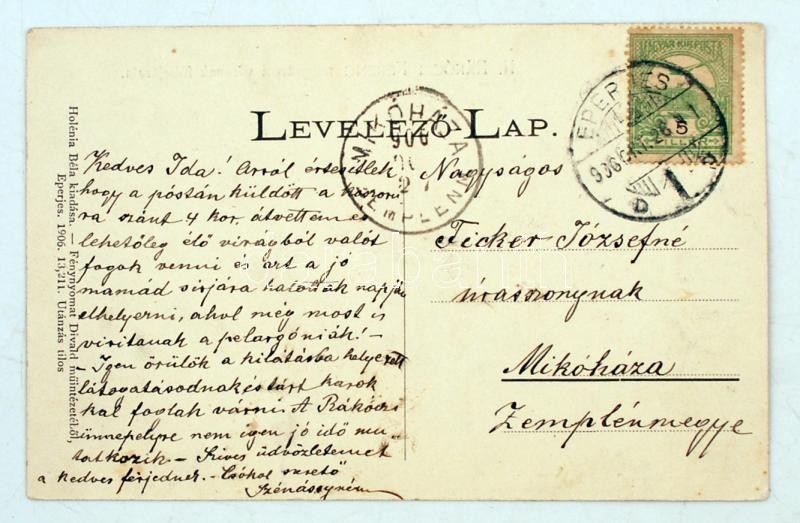 LEVELEZŐ-LAP.
Holénia Béla kiadása. — Fénynyomat Divald műintézetéből,
Eperjes. 1906. 13,211. Utánzás tilos
MAGYAR KIR. POSTA
5
FILLÉR
EPERJES
D
1
MIKÓHÁZA
906
ZEMPLÉN M
Kedves Ida! Arról értesitlek
hogy a póstán küldött a koszoru
ra szánt 4 kor. átvettem es
lehetőleg élő virágból valót
fogok venni és azt a jó
mamád sirjára halottak napján
elhelyezni, ahol még most is
viritanak a pelargóniák! –
– Igen örülök a kilátásba helyezett
látogatásodnak és tárt karok
kal foglak várni. A Rákóczi
ünnepelyre nem igen jó idő mu-
tatkozik – Szives üdvözletemet
a kedves férjednek. – Csókol szerető
Szénássyném
Nagyságos
Ficker Józsefné
úrasszonynak
Mikóháza
Zemplénmegye